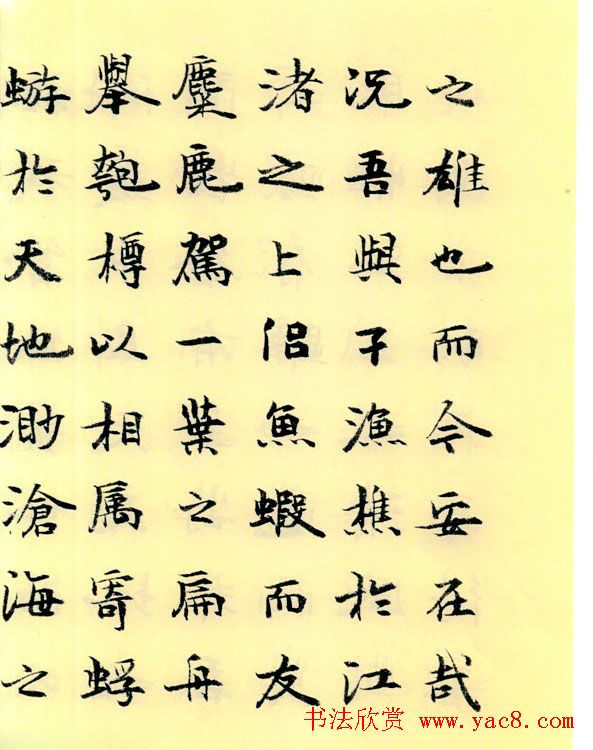 之雄也而今安在哉
况吾與子漁樵於江
渚之上侣魚蝦而友
麋鹿駕一葉之扁舟
舉匏樽以相属寄蜉
蝣於天地渺滄海之
书法欣赏 www.yac8.com